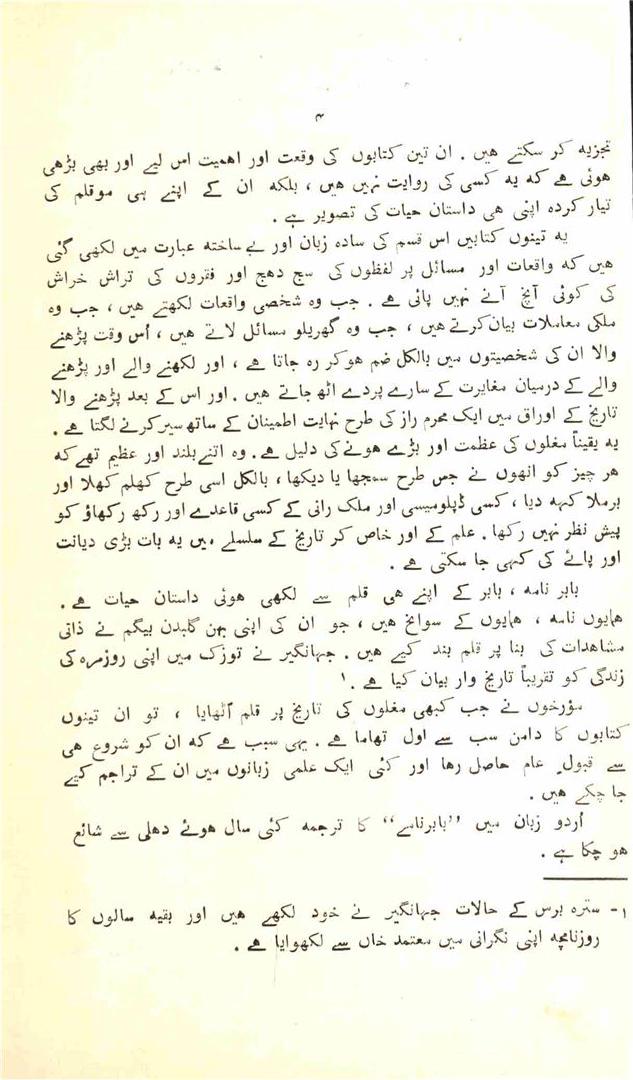 ۴
تجزیه کر سکتے هیں ۔ ان تین کتابوں کی وقعت اور اهمیت اس لیے اور بھی بڑھی
هوئی هے که یه کسی کی روایت نہیں هیں ، بلکه ان کے اپنے هی موقلم کی
تیار کرده اپنی هی داستان حیات کی تصویر هے ۔
یه تینوں کتابیں اس قسم کی ساده زبان اور بے ساخته عبارت میں لکھی گئی
هیں که واقعات اور مسائل پر لفظوں کی سج دھج اور فقروں کی تراش خراش
کی کوئی آنچ آنے نہیں پائی هے ۔ جب وه شخصی واقعات لکھتے هیں ، جب وه
ملکی معاملات بیان کرتے هیں ، جب وه گھریلو مسائل لاتے هیں ، اُس وقت پڑھنے
والا ان کی شخصیتوں میں بالکل ضم هو کر ره جاتا هے ، اور لکھنے والے اور پڑھنے
والے کے درمیان مغایرت کے سارے پردے اٹھ جاتے هیں ۔ اور اس کے بعد پڑھنے والا
تاریخ کے اوراق میں ایک محرم راز کی طرح نہایت اطمینان کے ساتھ سیر کرنے لگتا هے ۔
یه یقیناً مغلوں کی عظمت اور بڑے هونے کی دلیل هے ۔ وه اتنے بلند اور عظیم تھے که
هر چیز کو انھوں نے جس طرح سمجھا یا دیکھا ، بالکل اسی طرح کھلم کھلا اور
برملا کہه دیا ، کسی ڈپلومیسی اور ملک رانی کے کسی قاعدے اور رکھ رکھاؤ کو
پیش نظر نہیں رکھا ۔ علم کے اور خاص کر تاریخ کے سلسلے میں یه بات بڑی دیانت
اور پائے کی کہی جا سکتی هے ۔
بابر نامه ، بابر کے اپنے هی قلم سے لکھی هوئی داستان حیات هے ۔
همایوں نامه ، همایوں کے سوانح هیں ، جو ان کی اپنی بہن گلبدن بیگم نے ذاتی
مشاهدات کی بنا پر قلم بند کیے هیں ۔ جہانگیر نے توزک میں اپنی روزمره کی
زندگی کو تقریباً تاریخ وار بیان کیا هے ۔ ۱
مؤرخوں نے جب کبھی مغلوں کی تاریخ پر قلم اُٹھایا ، تو ان تینوں
کتابوں کا دامن سب سے اول تھاما هے ۔ یہی سبب هے که ان کو شروع هی
سے قبولِ عام حاصل رها اور کئی ایک علمی زبانوں میں ان کے تراجم کیے
جا چکے هیں ۔
اُردو زبان میں ’’بابرنامے‘‘ کا ترجمه کئی سال هوئے دهلی سے شائع
هو چکا هے ۔
۱- ستره برس کے حالات جہانگیر نے خود لکھے هیں اور بقیه سالوں کا
روزنامچه اپنی نگرانی میں معتمد خاں سے لکھوایا هے ۔